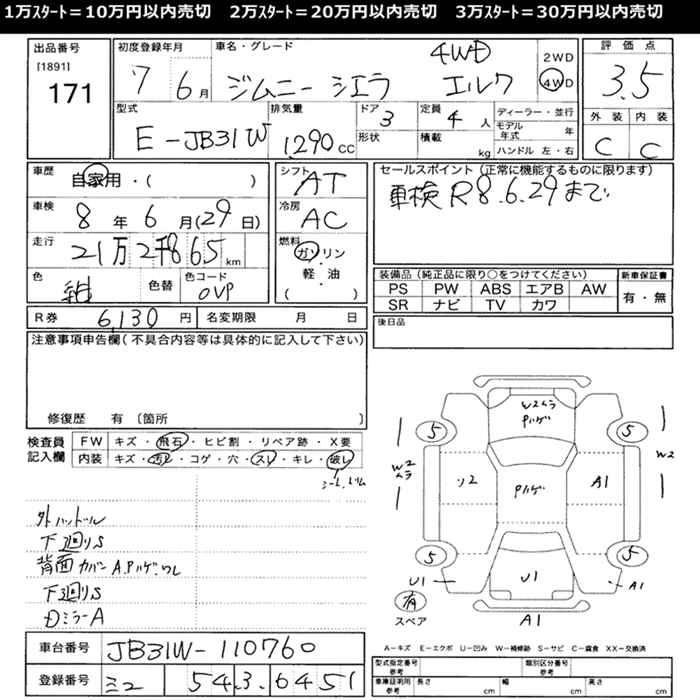 1万ｽﾀｰﾄ＝10万円以内売切　2万ｽﾀｰﾄ＝20万円以内売切　3万ｽﾀｰﾄ＝30万円以内売切
出品番号
[1891]
171
初度登録年月
7 6月
車名・グレード
ジムニー シエラ 4WD エルク
2WD
4WD
評価点
3.5
外装 内装
C C
型式
E-JB31W
排気量
1.290 CC
ドア 3
形状
定員 4 人
積載 kg
ディーラー・並行
モデル年式 年
ハンドル 左・右
車歴
自家用・( )
車検
8年 6月(29日)
走行
21万2千865 km
色
紺
色替
色コード
0VP
シフト
AT
冷房
AC
燃料
ガソリン
・軽・油
( )
セールスポイント(正常に機能するものに限ります)
車検R8.6.29まで
装備品(純正品に限り○をつけてください)
PS PW ABS エアB AW
SR ナビ TV カワ
新車保証書
有・無
R券 6,130 円
名変期限 月 日
後日品
注意事項申告欄(不具合内容等は具体的に記入して下さい)
修復歴 有 〔箇所 〕
検査員記入欄
FW キズ・飛石・ヒビ割・リペア跡・X要
内装 キズ・汚レ・コゲ・穴・スレ・キレ・破レ
外ハンドル
下廻りS
背面カバーA.Pハゲ.ワレ
下廻りS
Dミラー A
W2ムラ
Pハゲ
5 5
W2
ムラ
W2
ソ2
Pハゲ
A1
5 5
U1
U1
A1
有
スペア
A1
A－キズ E－エクボ U－凹み W－補修跡 S－サビ C－腐食 XX－交換済
車台番号
JB31W-110760
登録番号
ミ2 543.6451
型式指定番号 参考
類別区分番号 参考
車庫証明用 参考
長さ cm 幅 cm 高さ cm